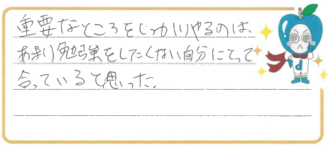 重要なところをしっかりやるのは、
あまり勉強をしたくない自分にとって
合っていると思った。
d